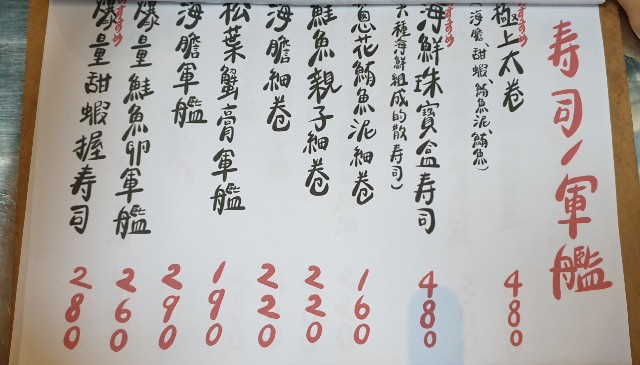 寿司/軍艦
おすすめ
極上太卷
(海膽、甜蝦、鮪魚泥、鮪魚)
480
おすすめ
海鮮珠寶盒寿司
大種海鮮組成的散寿司)
480
蔥花鮪魚泥細卷
160
鮭魚親子細卷
220
海膽細卷
220
松葉蟹膏軍艦
190
海膽軍艦
290
おすすめ
爆量鮭魚卵軍艦
260
おすすめ
爆量甜蝦握寿司
280